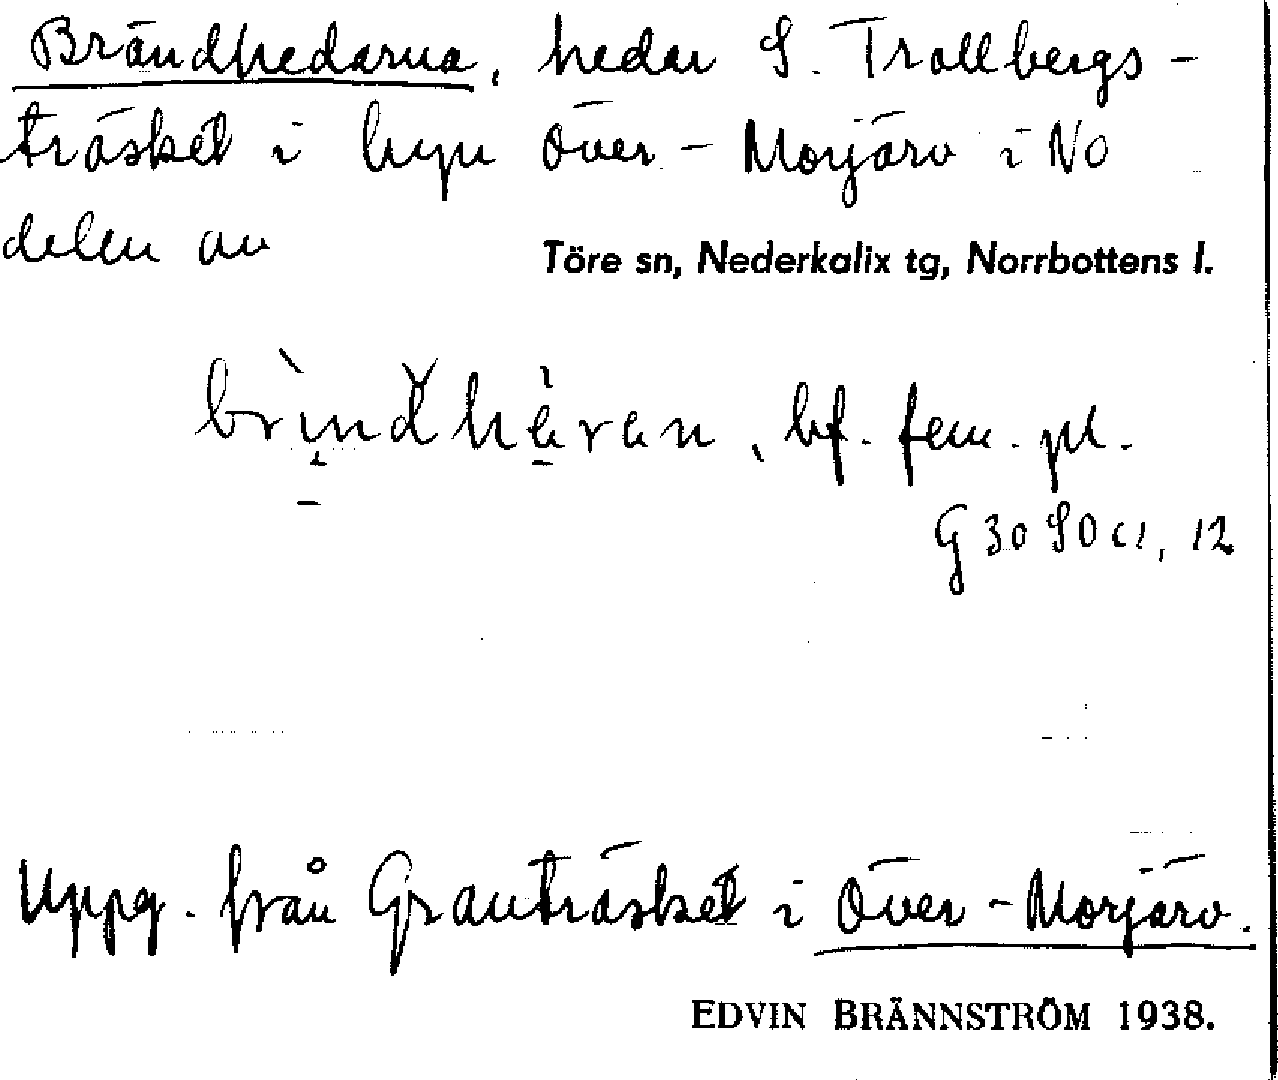 Brändhedarna, hedar S. Trollbergs-
träsket i byn Över-Morjärv i NO
delen av
Töre sn, Nederkalix tg, Norrbottens l.
bf. fem. pl.
G 30 SO c1, 12
Uppg. från Granträsket i Över-Morjärv.
EDVIN BRÄNNSTRÖM 1938.